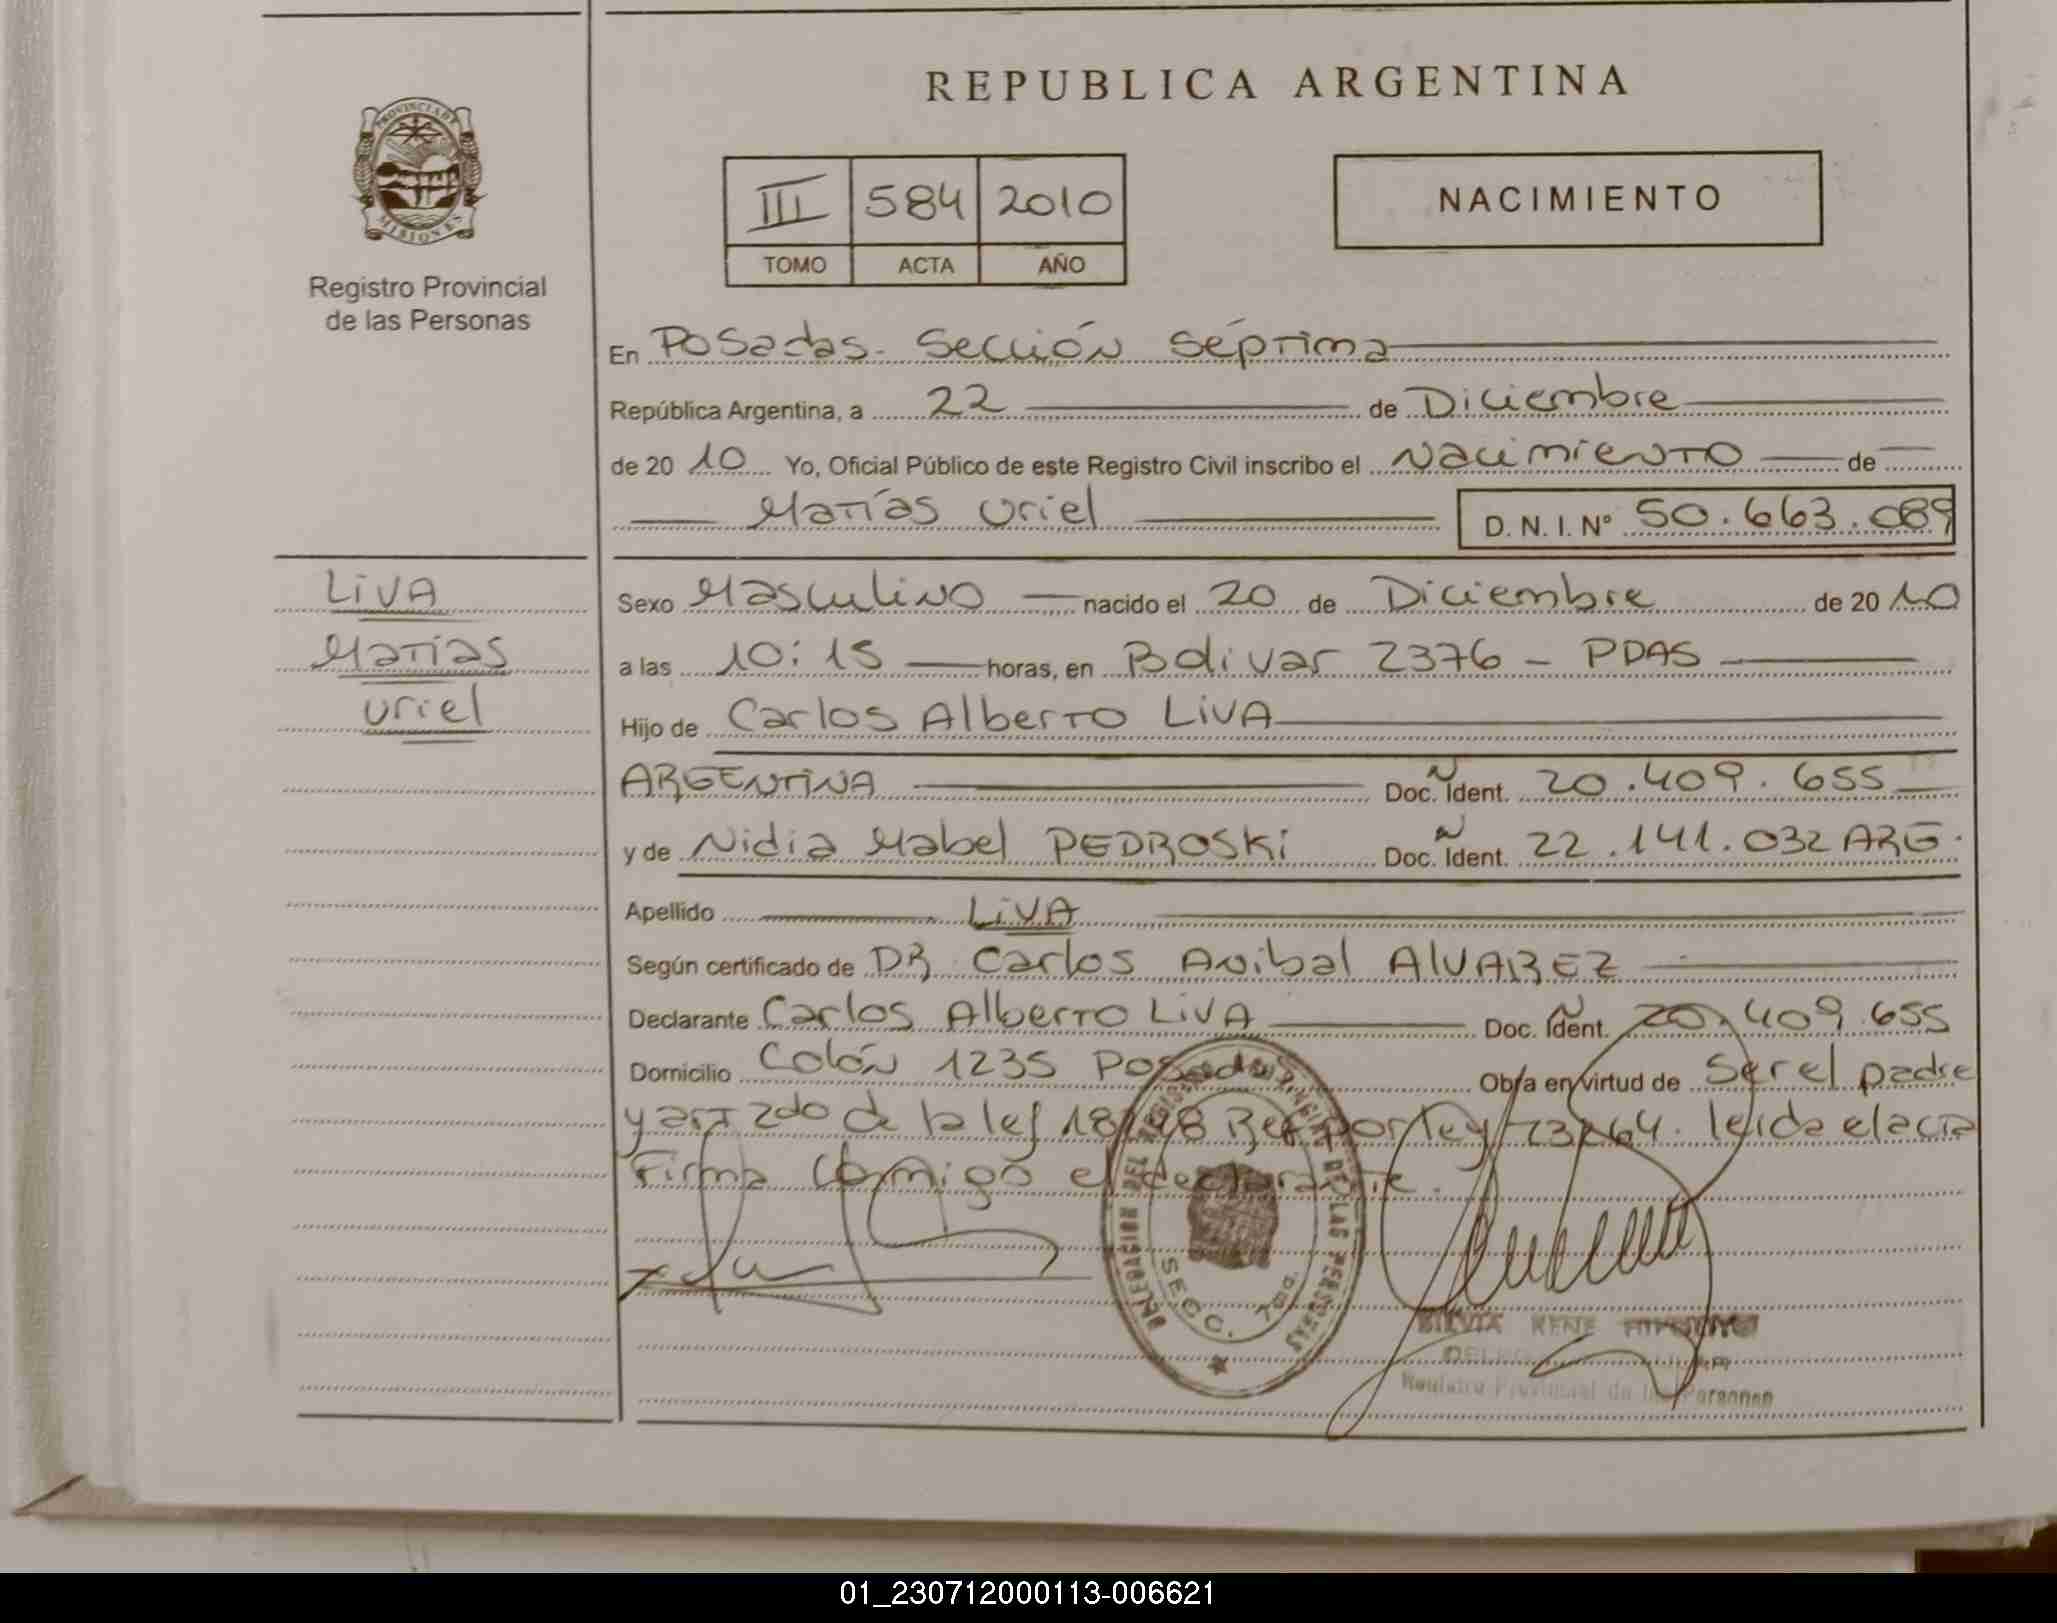 REPUBLICA ARGENTINA
PROVINCIA DE
MISIONES
Registro Provincial
de las Personas
III 584 2010
TOMO ACTA AÑO
NACIMIENTO
En Posadas. Sección Séptima
República Argentina, a 22 de Diciembre
de 20 10 Yo, Oficial Público de este Registro Civil inscribo el Nacimiento de
Matías Uriel D. N. I. Nº 50.663.089
LIVA
Matías
Uriel
Sexo Masculino nacido el 20 de Diciembre de 20 10
a las 10:15 horas, en Bolivar 2376 - PDAS
Hijo de Carlos Alberto LIVA
ARGENTINA Doc. Ident. 20.409.655
y de Nidia Mabel PEDROSKI Doc. Ident. 22.141.032 ARG.
Apellido LIVA
Según certificado de DR Carlos Anibal ALVAREZ
Declarante Carlos Alberto LIVA Doc. Ident. 20.409.655
Domicilio Colón 1235 Posadas Obra en virtud de Ser el padre
y art 2do de la ley Ref por ley leida el acta
Firma Conmigo el declarante.
DELEGACION DEL REGISTRO PROVINCIAL DE LAS PERSONAS
SECC. 7ma.
SILVIA RENE
Registro Provincial de las Personas
01_230712000113-006621